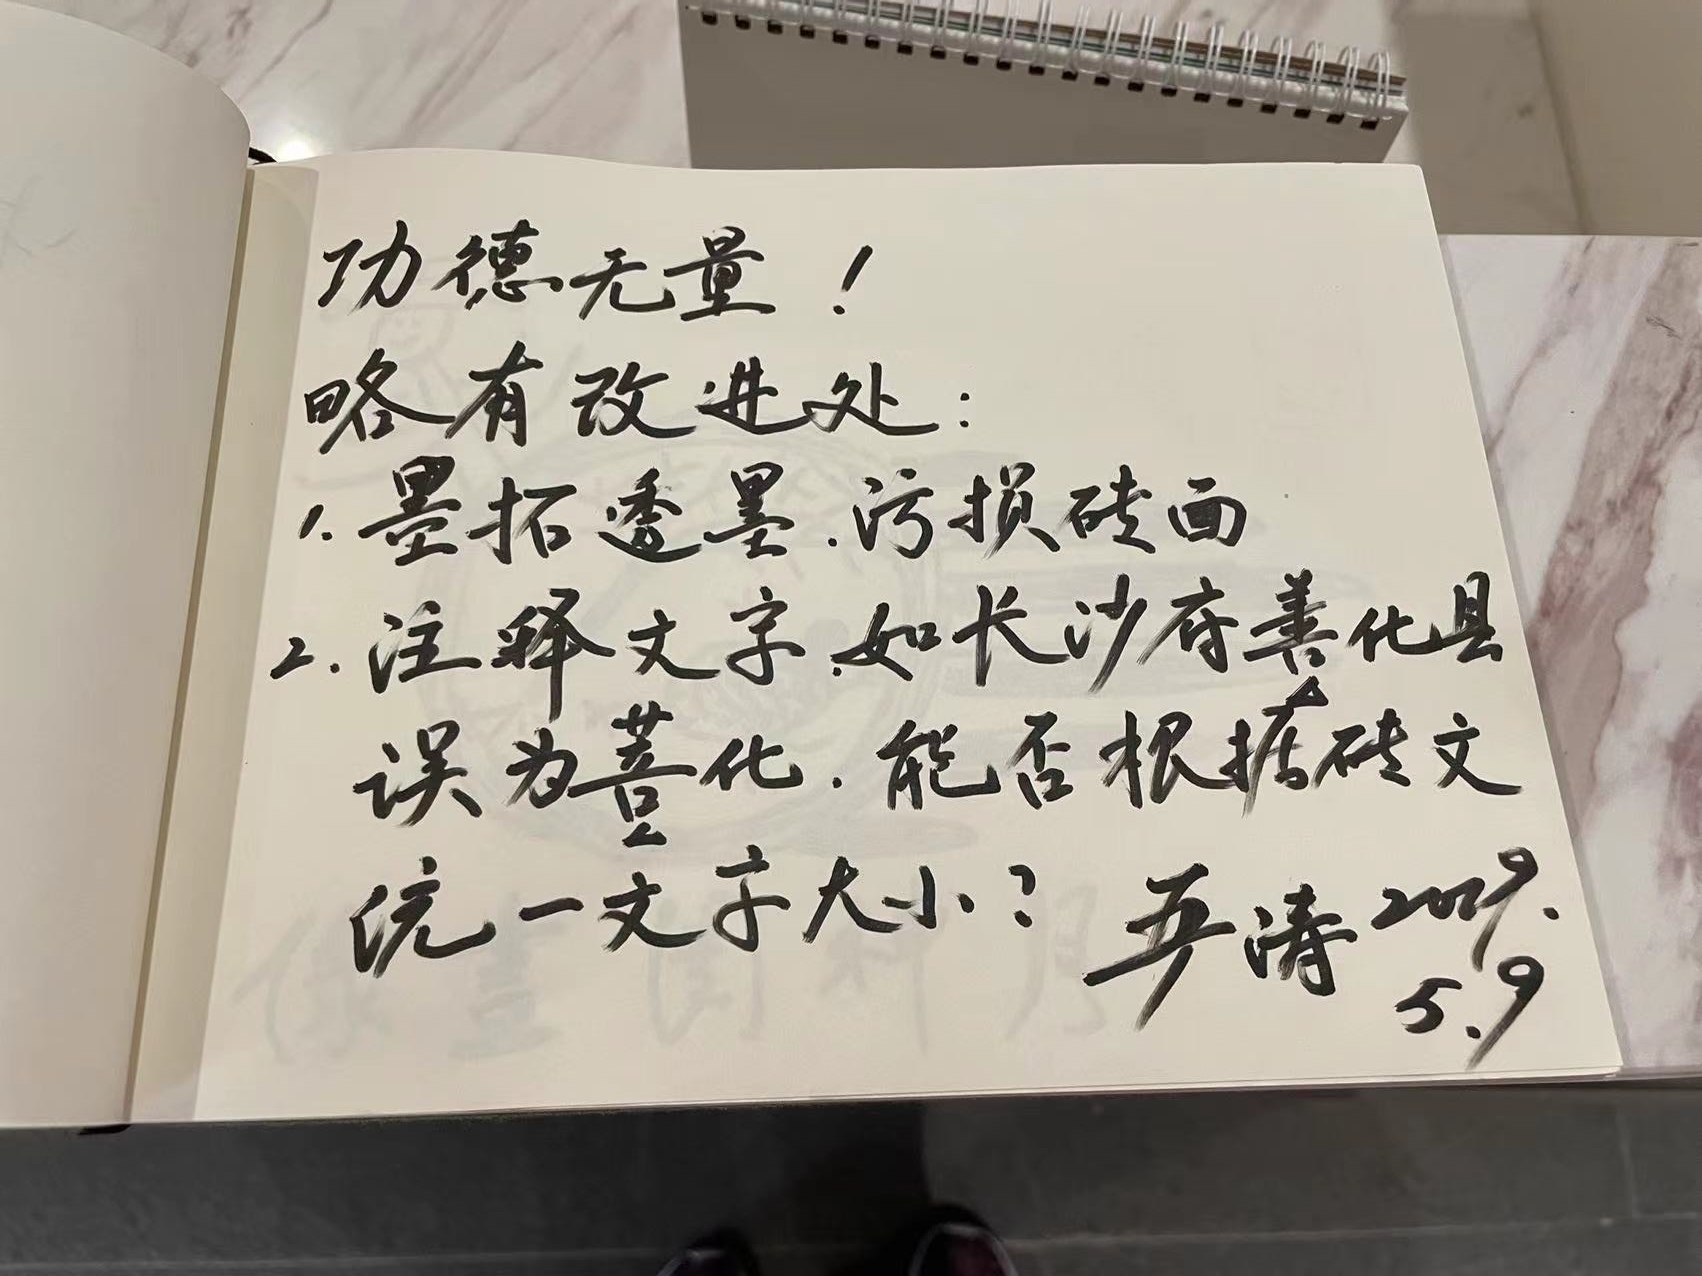 功德无量！
略有改进处：
1.墨拓透墨.污损砖面
2.注释文字.如长沙府善化县
误为菩化.能否根据砖文
统一文字大小？
涛
5.9